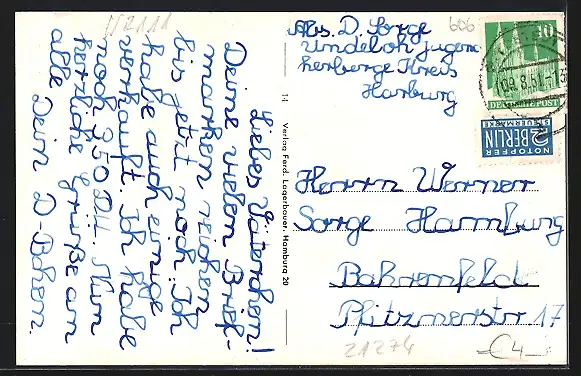 Liebes Väterchen!
Deine vielen Brief-
marken reichen
bis jetzt noch. Ich
habe auch einige
verkauft. Ich habe
noch 3,50 D.M. Nun
herzliche Grüße an
alle Dein D-Bchen.
Abs. D. Sorge
Undeloh Jugend
herberge Kreis
Harburg
Herrn Werner
Sorge Hamburg
Bahrenfeld
Pfitznerstr 17
14 Verlag Ferd. Lagerbauer, Hamburg 20
10
DEUTSCHE POST
09.8.51.-1
NOTOPFER
2 BERLIN
STEUERMARKE
606
21274
€4,-